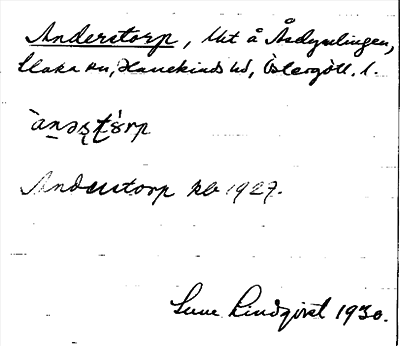 Anderstorp, Utt å Åsdymlingen,
Slaka sn, Hanekinds hd, Östergötl. l.
`anəʂʈɔrp
Anderstorp kb 1927.
Sune Lindqvist 1930.